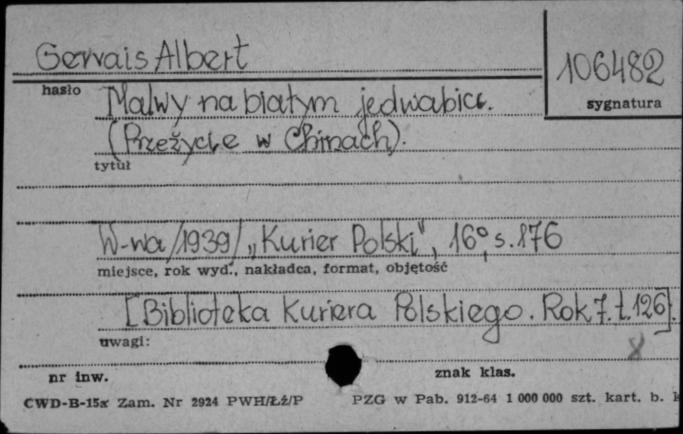 Gervais Albert
106482
hasło
sygnatura
Malwy na białym jedwabiu.
(Przeżycie w Chinach).
tytuł
W-wa /1939/ „Kurier Polski", 16°, s. 176
miejsce, rok wyd., nakładca, format, objętość
[Biblioteka Kuriera Polskiego. Rok 7. t. 126].
uwagi:
8
nr inw.
znak klas.
CWD-B-15x Zam. Nr 2924 PWH/Łź/P PZG w Pab. 912-64 1 000 000 szt. kart. b. k